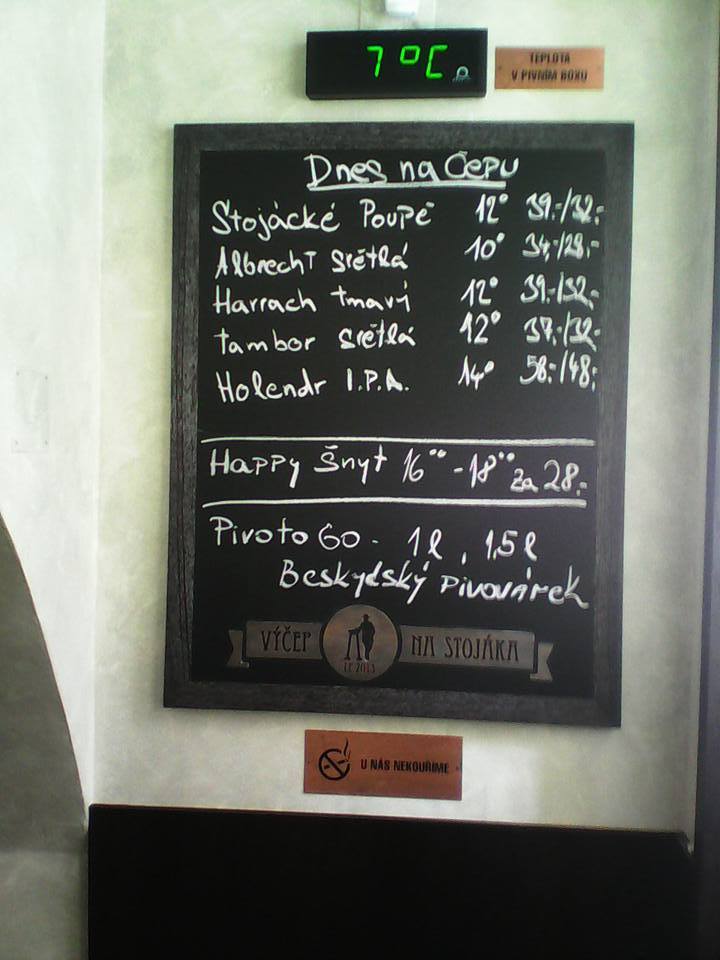 7°C
TEPLOTA
V PIVNÍM BOXU
Dnes na Čepu
Stojácké Poupě 12° 39.-/32.-
Albrecht světlá 10° 34.-/28.-
Harrach tmavý 12° 39.-/32.-
tambor světlá 12° 37.-/32.-
Holendr I.P.A. 14° 58.-/48.-
Happy Šnyt 16°° - 18°° za 28.-
Pivo to GO - 1l, 1,5l
Beskydský pivovárek
VÝČEP NA STOJÁKA
LP 2013
U NÁS NEKOUŘÍME